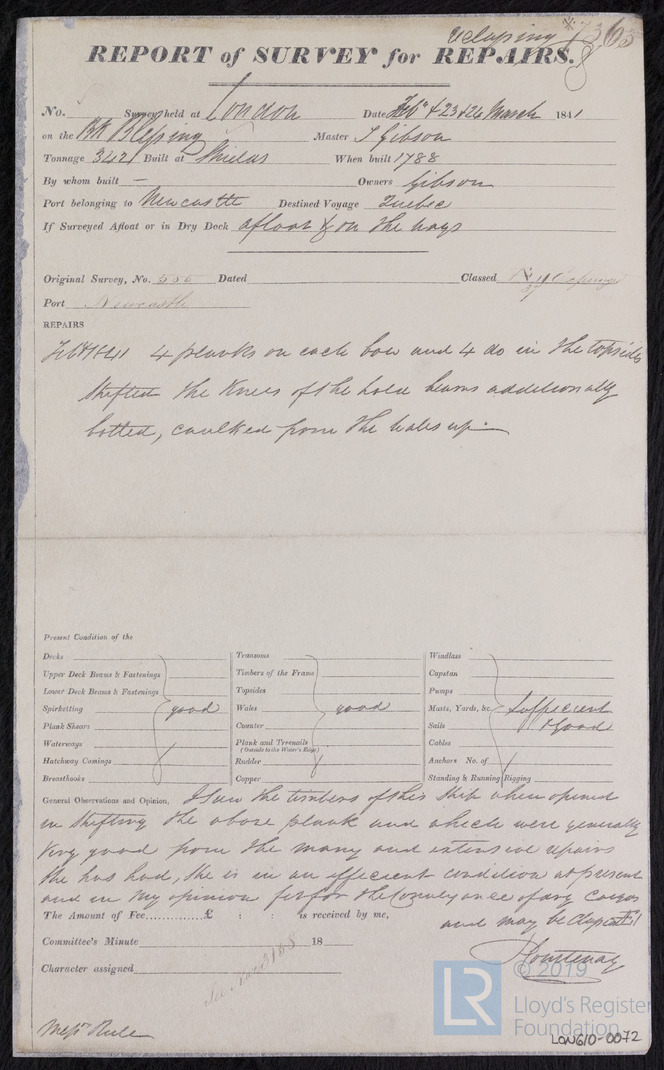 REPORT of SURVEY for REPAIRS.
No. Survey held at London Date Feby 4 23 & 26 March 1841
on the Bk Blessing Master T Gibson
Tonnage 342 Built at Shields When built 1788
By whom built — Owners Gibson
Port belonging to Newcastle Destined Voyage Quebec
If Surveyed Afloat or in Dry Dock afloat & on the ways
Original Survey, No. 556 Dated Classed
Port Newcastle
REPAIRS
1841 4 planks on each bow and 4 do in the topsides
shifted the Knees of the hold beams additionally
bolted, caulked from the wales up
Present Condition of the
Decks
Upper Deck Beams & Fastenings
Lower Deck Beams & Fastenings
Spirketting good
Plank Shears
Waterways
Hatchway Comings
Breasthooks
Transoms
Timbers of the Frame
Topsides
Wales good
Counter
Plank and Treenails
(Outside to the Water's Edge)
Rudder
Copper
Windlass
Capstan
Pumps
Masts, Yards, &c. Sufficient
Sails & Good
Cables
Anchors No. of
Standing & Running Rigging
General Observations and Opinion, I saw the timbers of this Ship when opened
in shifting the above plank and which were generally
Very good from the many and extensive repairs
She has had, She is in an efficient condition at present
and in my opinion fit for the Conveyance of dry Cargos
The Amount of Fee £ : : is received by me, and may be Classed Æ1
Committee's Minute 18
Character assigned
See No 3168
Courtenay
Messrs Rule
© 2019
LR
Lloyd's Register
Foundation
LON610-0072